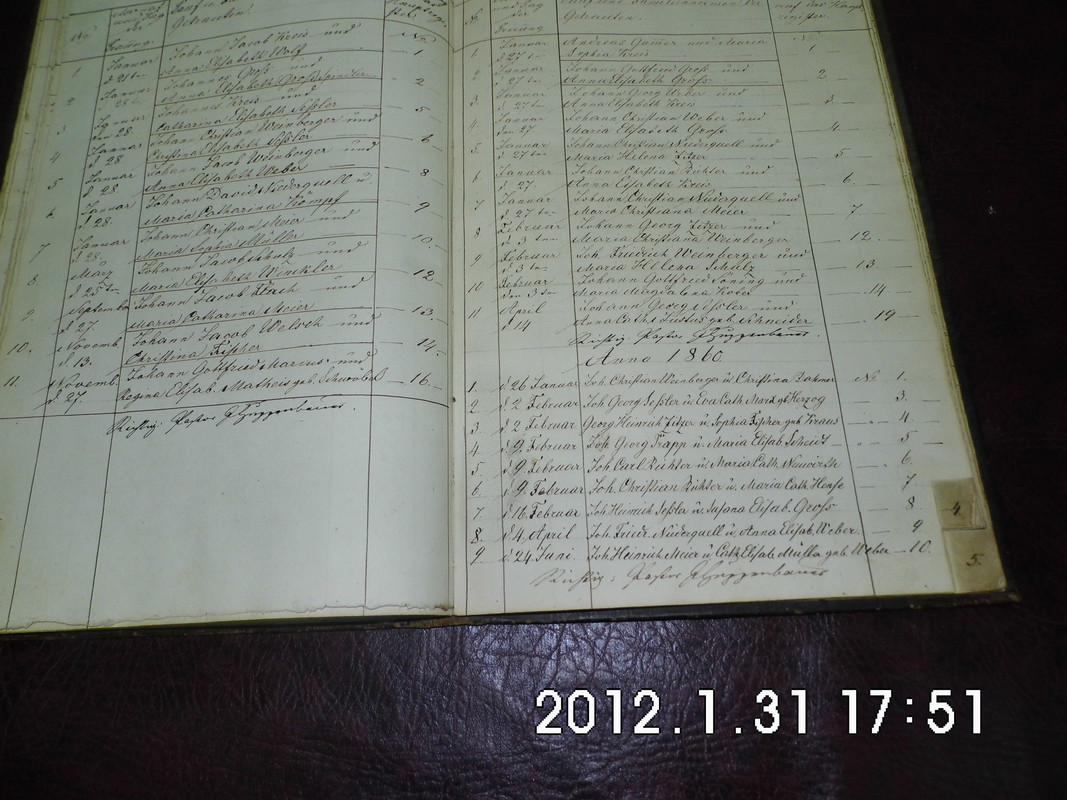 Getrauten.
Johann Jacob Kreis und
1 Januar Anna Elisabeth Wolf 1
Johannes Groß und
2 Januar Anna Elisabeth Großspindler 2
Johannes Kreis und
3 Januar den 28 Catharina Elisabeth Seßler 5
Johann Christian Weinberger und
4 Januar d 28 Christina Elisabeth Seßler 6
Johann Jacob Weinberger und
5 Januar d 28 Anna Elisabeth Weber 8
Johann David Niederquell u.
6 Januar d 28. Maria Catharina Kömpf 9
Johann Christian Meier und
7 Januar d 28. Maria Sophia Müller 10.
Johann Jacob Schulz und
8. März d 25 ten Maria Elisabeth Winckler 12
Johann Jacob Flach und
9 September d 27. Maria Catharina Meier 13.
Johann Jacob Welsch und
10. Novemb d 13. Christina Fischer 14.
Johann Gottfried Marcus und
11. Novemb. d 27. Regina Elisab. Matheis geb. Schwöbel 16.
Richtig: Pastor Guggenbauer.
No und Tag der Trauung Tauf und Familiennamen der Getrauten. auf das Haupt register.
1 Januar d 27 ten Andreas Gumer und Maria
Sophia Kreis 1
2 Januar d 27 ten Johann Gottfried Groß und
Anna Elisabeth Groß 2
3 Januar d 27 ten Johann Georg Weber und
Anna Elisabeth Kreis 3
4. Januar den 27 Johann Christian Weber und
Maria Elisabeth Groß 4.
5 Januar d 27 ten Johann Christian Niederquell und
Maria Helena Zitzer 5
6 Januar d 27. Johann Christian Richter und
Anna Elisabeth Kreis 6.
7 Januar d 27 ten Johann Christian Niederquell und
Maria Christiana Meier 7
8 Februar d 3 ten Johann Georg Zitzer und
Maria Christiana Weinberger 12.
9 Februar d 3 ten Joh. Friedrich Weinberger und
Maria Helena Schulz 13.
10 Februar den 3 ten Johann Gottfried Föning und
Maria Magdalena Kobel 14
11 April d 14 Johann Georg und
Anna Cath. Justus geb Schneider 19
Richtig Pastor Guggenbauer.
Anno 1860
1. d 26 Januar Joh. Christian Weinberger u. Christina Dahmer No 1.
2. d 2 Februar Joh. Georg Seßler u Eva Cath. Mark geb Herzog 3.
3 d 2 Februar Georg Heinrich Zitzer u Sophia Fischer geb Kraus 4
4 d 9. Februar Joh. Georg Trapp u. Maria Elisab Scheid 5
5 d 9. Februar Joh. Carl Richter u. Maria Cath. Neuwirth 6.
6. d 9 Februar Joh. Christian Richter u. Maria Cath. Hense 7
7 d 16 Februar Joh. Heinrich Seßla u. Susana Elisab. Groß 8
8. d 4 April Joh. Friedr. Niederquell u. Anna Elisab. Weber. 9
9 d 24 Juni Joh Heinrich Meier u. Cath Elisab Mülla geb Weber 10.
Richtig: Pastor Guggenbauer
4.
5.
2012.1.31 17:51